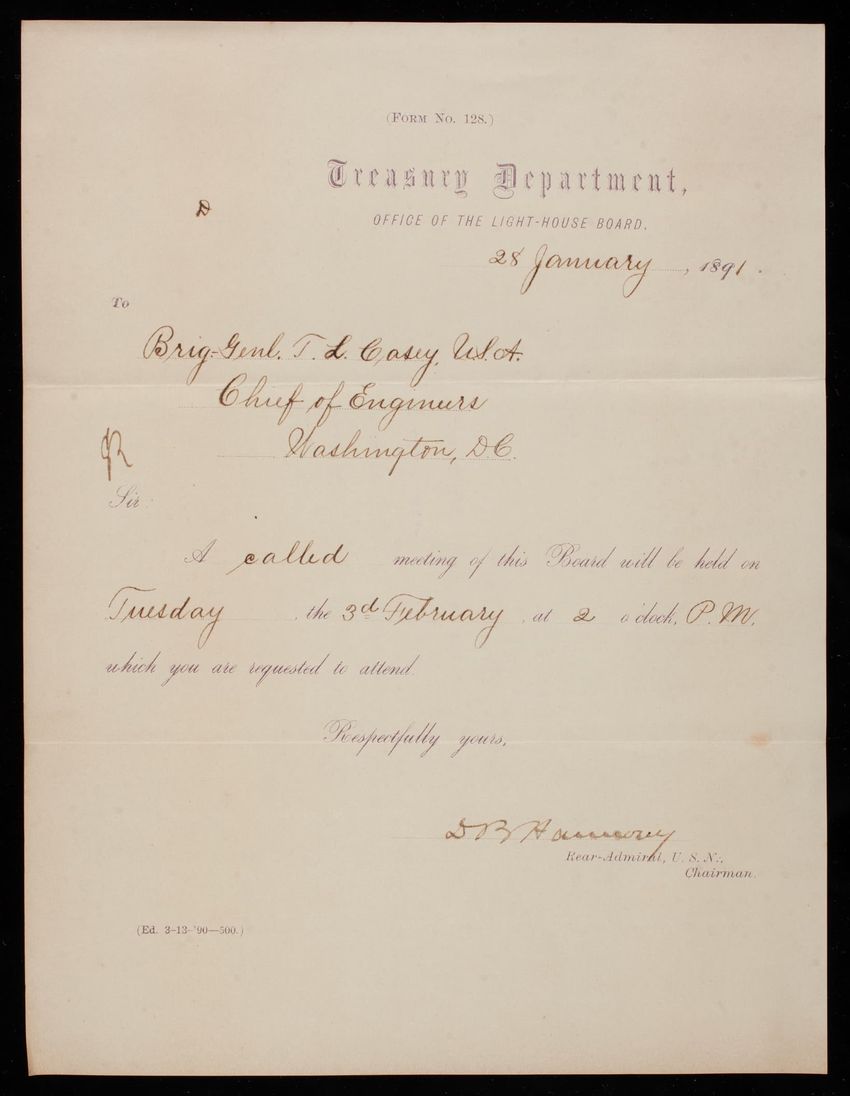 (FORM NO. 128.)
Treasury Department,
D
OFFICE OF THE LIGHT-HOUSE BOARD.
28 January, 1891.
To
Brig-Genl. T. L. Casey, U.S.A.
Chief of Engineers
Washington, D.C.
R
Sir:
A called meeting of this Board will be held on
Tuesday, the 3d February, at 2 o'clock, P.M.
which you are requested to attend.
Respectfully yours,
D B Harmony
Rear-Admiral, U. S. N.,
Chairman.
(Ed. 3-13-'90—500.)